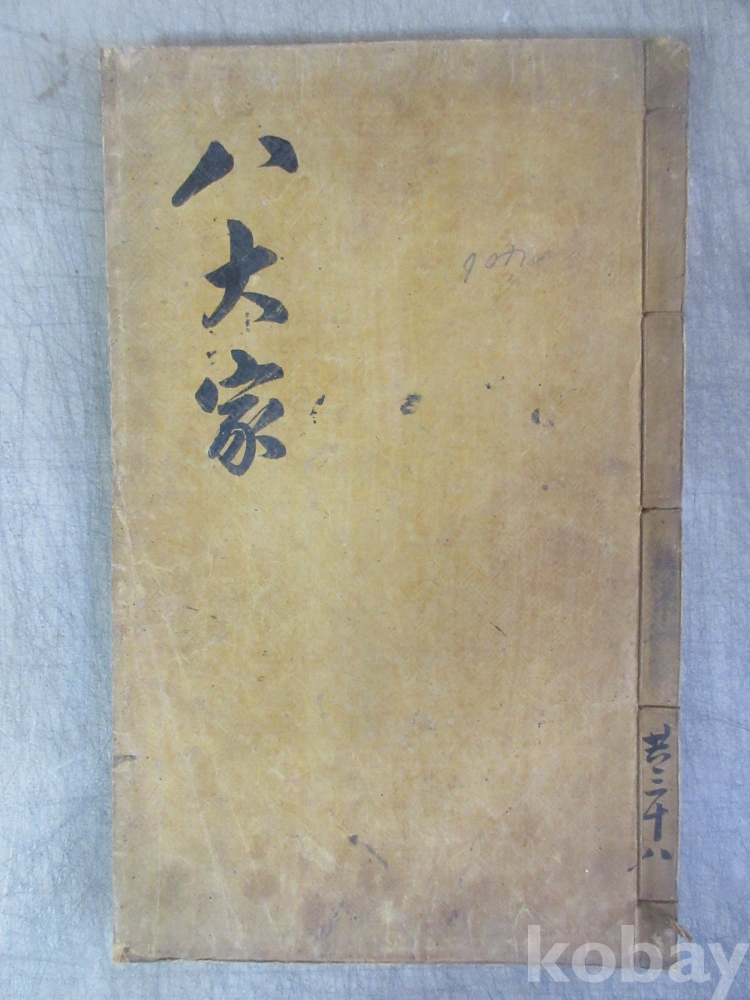 八大家
共三十八
kobay